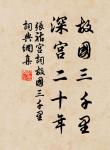 故國三千里
深宮二十年
張祜宮詞故國三千里
詞典網集